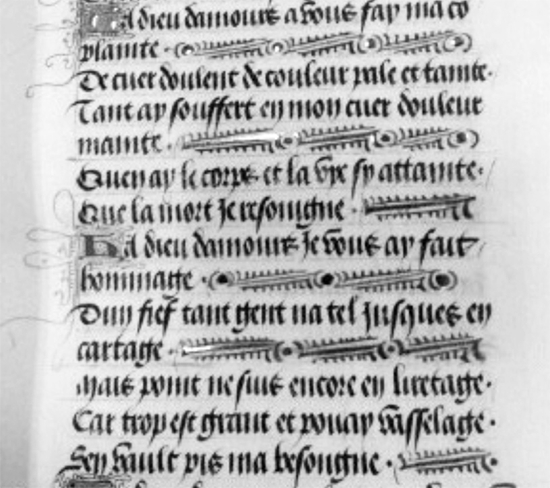 Ha dieu damours a vous fay ma co
plainte
De cuer doulent de couleur pale et tainte.
Tant ay souffert en mon cuer douleur
mainte.
Quen ay le corps et la vye sy attainte.
Que la mort Je resongne.
Ha dieu damours Je vous ay fait
hommage.
Dun fief tant gent na tel Jusques en
cartage.
Mais point ne suis encore en lieetage.
Car trop est grant et pouay vasselage.
Sen vault pis ma besongne.